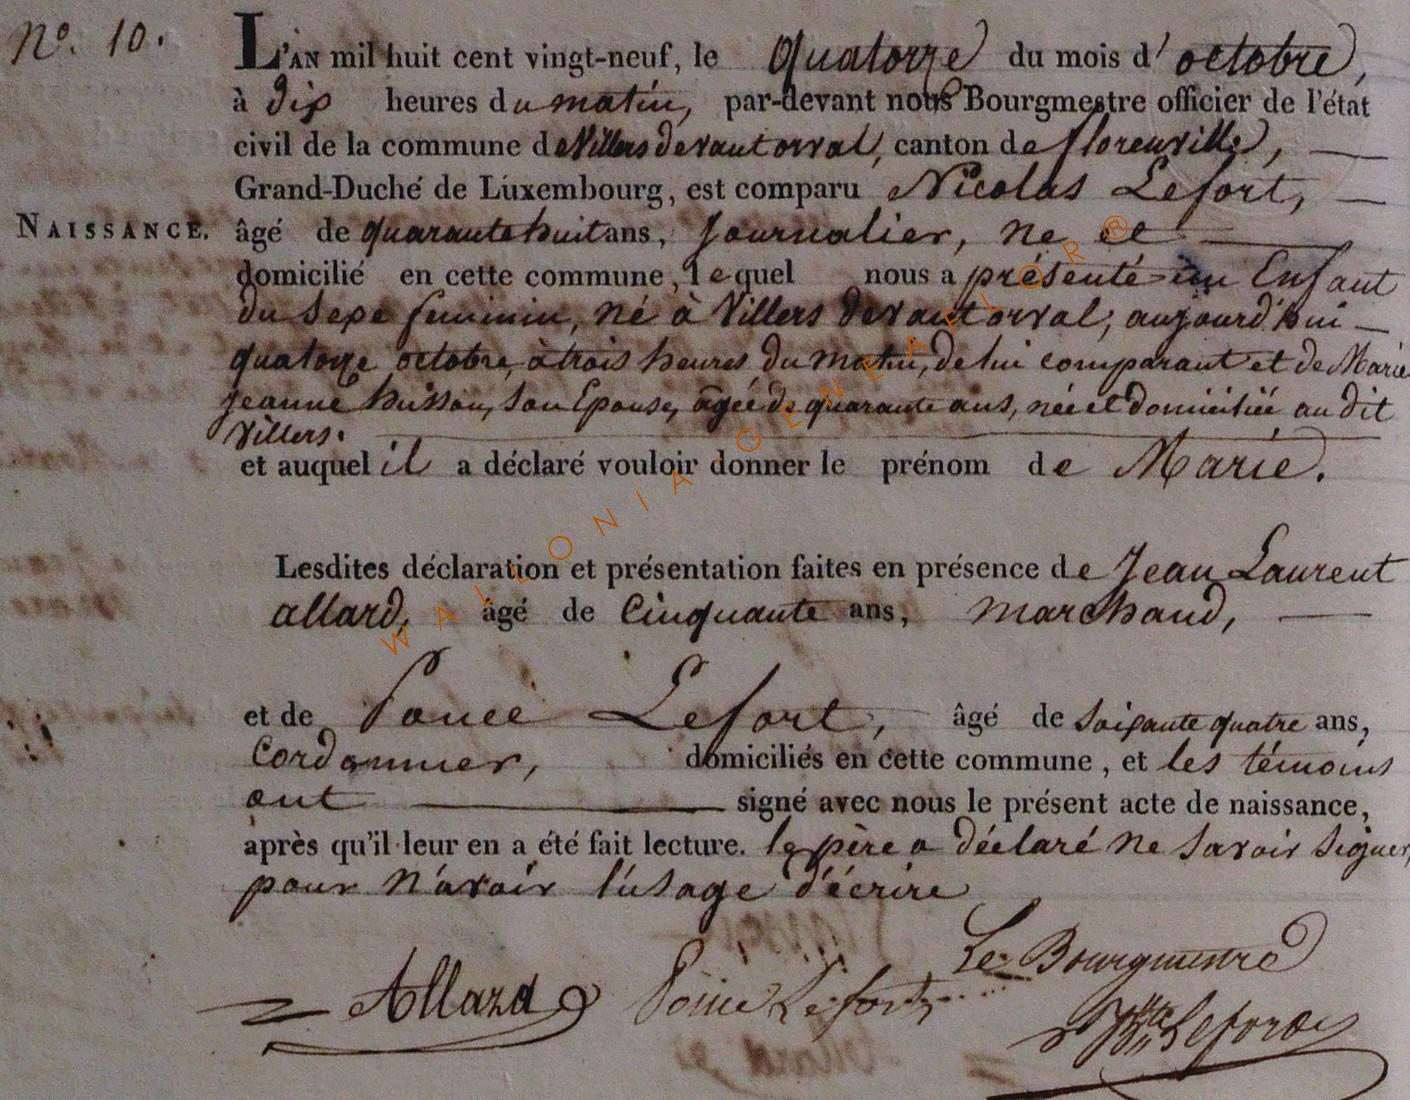 No. 10.
L'AN mil huit cent vingt-neuf, le quatorze du mois d' octobre,
à dix heures du matin, par-devant nous Bourgmestre officier de l'état
civil de la commune de Villers devant orval, canton de florenville,
Grand-Duché de Luxembourg, est comparu Nicolas Lefort,
NAISSANCE.
âgé de quarante huit ans, Journalier, né et
domicilié en cette commune, lequel nous a présenté un Enfant
du Sexe feminin, né à Villers devant orval, aujourd'hui
quatorze octobre, à trois heures du matin, de lui comparant et de Marie
Jeanne husson, son Epouse, agée de quarante ans, née et domiciliée au dit
Villers.
et auquel il a déclaré vouloir donner le prénom de Marie.
Lesdites déclaration et présentation faites en présence de Jean Laurent
allard, âgé de Cinquante ans, marchand,
et de Ponce Lefort, âgé de Soixante quatre ans,
Cordonnier, domiciliés en cette commune, et les témoins
ont signé avec nous le présent acte de naissance,
après qu'il leur en a été fait lecture. le père a déclaré ne savoir signer,
pour n'avoir l'usage d'écrire
Le Bourgmestre
Allard Ponce Lefort
WALLONIA GENEALOR®